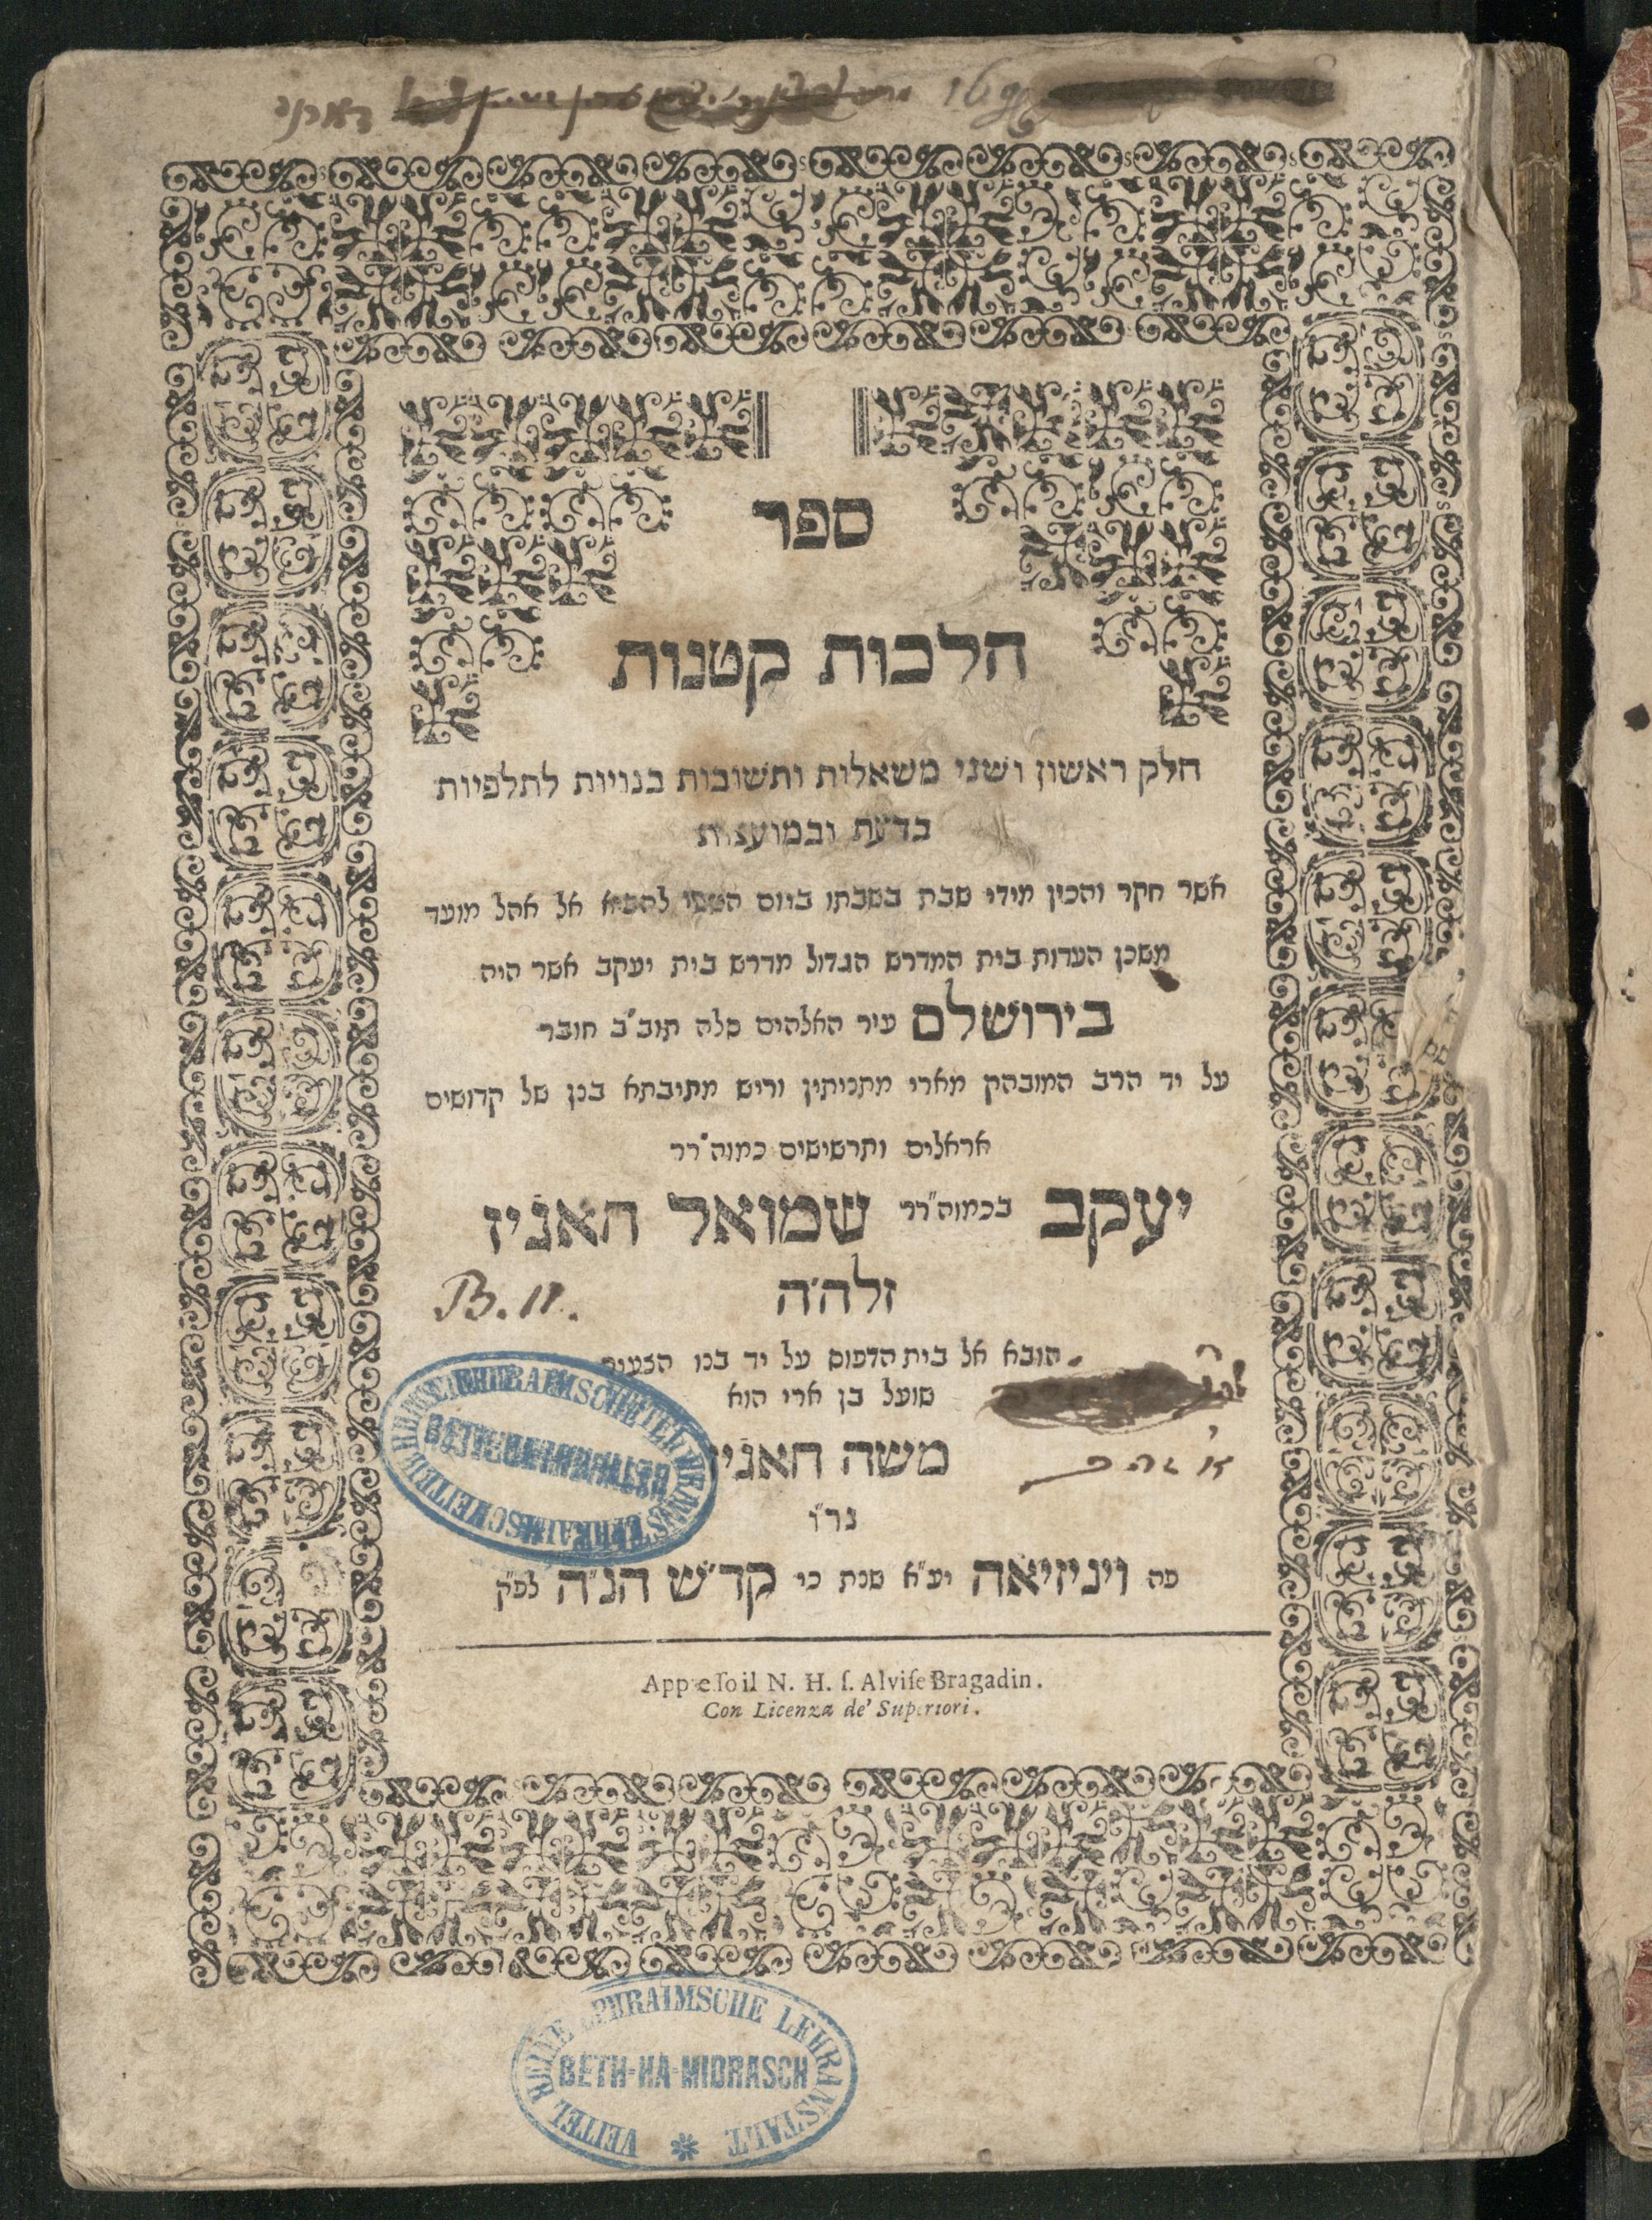 ספר
הלכות קטנות
חלק ראשון ושני משאלות ותשובות בנויות לתלפיות
בדעת ובמועצות
אשר חקר והכין מידי שבת בשבתו ביום הששי להביא אל אהל מועד
משכן העדות בית המדרש הגדול מדרש בית יעקב אשר היה
בירושלם עיר האלהים סלה תוב״ב חובר
על יד הרב המובהק מארי מתניתין וריש מתיבתא בנן של קדושים
אראלים ותרשישים כמוה״רר
יעקב בכמוה״רר שמואל חאגיז
זלה״ה
B. 11.
הובא אל בית הדפוס על יד בנו הצעיר
שועל בן ארי הוא
משה חאגיז
נר״ו
פה ויניזיאה יע״א שנת כי קד״ש הנ״ה לפ״ק
Appresso il N. H. ſ. Alviſe Bragadin.
Con Licenza de' Superiori.
VEITEL HEINE EPHRAIMSCHE LEHRANSTALT
BETH-HA-MIDRASCH